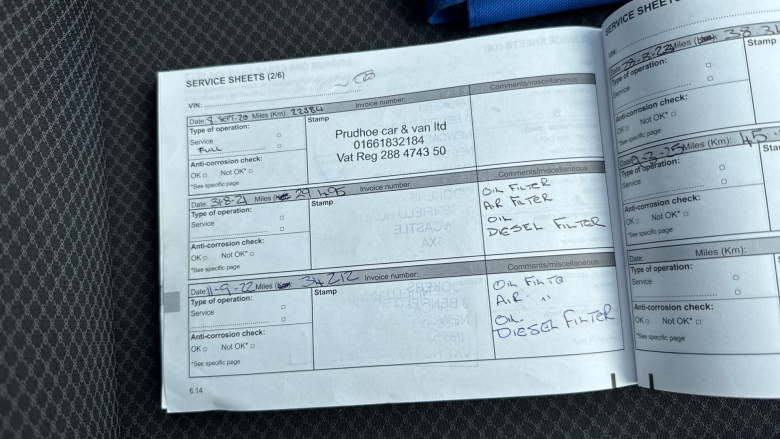 SERVICE SHEETS (2/6)
VIN:
Date: 8 SEPT-20 Miles (Km): 22384 Invoice number:
Type of operation:
Service
FULL
Anti-corrosion check:
OK Not OK*
*See specific page
Stamp
Prudhoe car & van ltd
01661832184
Vat Reg 288 4743 50
Comments/miscellaneous
Date: 3-8-21 Miles 29 495 Invoice number:
Type of operation:
Service
Anti-corrosion check:
OK Not OK*
*See specific page
Stamp
Comments/miscellaneous
OIL FILTER
AIR FILTER
OIL
DIESEL FILTER
Date: 11-9-22 Miles 34212 Invoice number:
Type of operation:
Service
Anti-corrosion check:
OK Not OK*
*See specific page
Stamp
Comments/miscellaneous
OIL FILTE
AIR "
OIL
DIESEL FILTER
6.14
SERVICE SHEETS
VIN:
Date: Miles
Type of operation:
Service
Anti-corrosion check:
OK Not OK*
*See specific page
Stamp
Date: Miles (Km):
Type of operation:
Service
Anti-corrosion check:
OK Not OK*
*See specific page
Date: Miles (Km):
Type of operation:
Service
Anti-corrosion check:
OK Not OK*
*See specific page